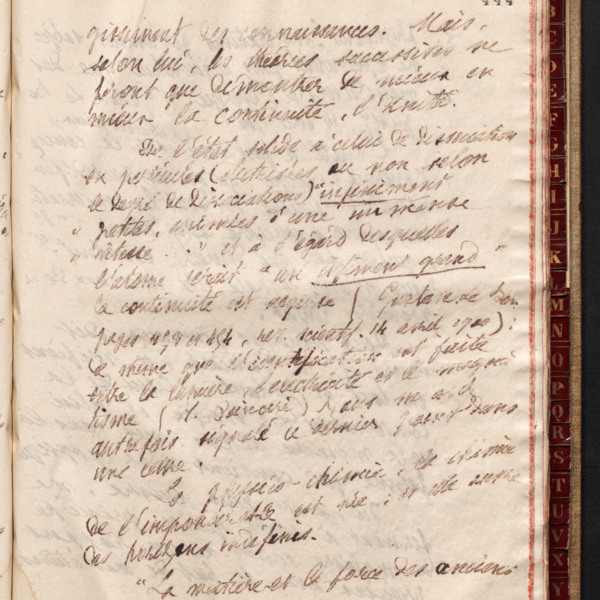 444
des connaissances. Mais,
selon lui, les théories successives ne
feront que démontrer de mieux en
mieux la continuité, l'unité.
De l'état solide à celui de dissociation
en particules (électrisées ou non selon
le degré de dissociations) "infiniment
" petites, animées d'une immense
" vitesse " et à l'égard desquelles
l'atome serait "un élément grand"
la continuité est exposée (Gustave Le Bon
pages et 454, rev. scientif. 14 avril 1900) ;
de même que l'identification est faite
entre la lumière, l'électricité et le magné
tisme ( Poincaré) vous m'avez
autrefois signalé ce dernier dans
une lettre.
La physico-chimie, la chimie
de l'impondérable est née ; et elle ouvre
des horizons indéfinis.
"La matière et la force des anciens
B
C
D
E
F
G
H
I
J
K
L
M
N
O
P
Q
R
S
T
U
V
X
Y